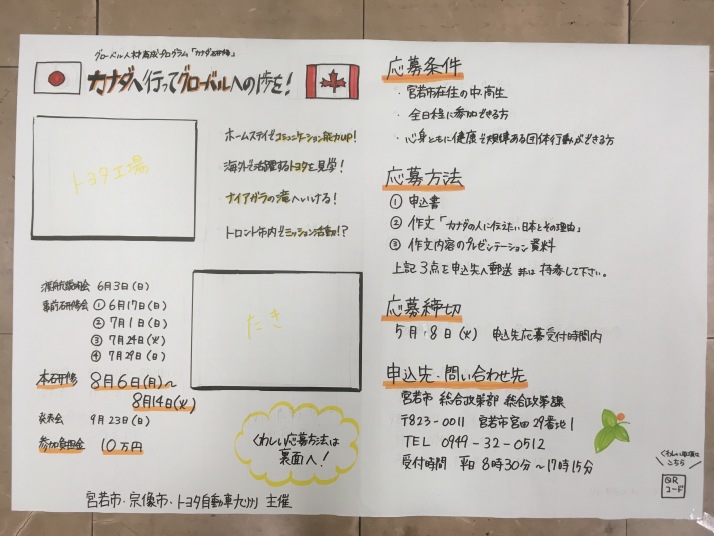 グローバル人材育成プログラム「カナダ研修」
カナダへ行ってグローバルへの1歩を!
トヨタ工場
ホームステイでコミュニケーション能力UP!
海外で活躍するトヨタを見学!
ナイアガラの滝へいける!
トロント市内でミッション活動!?
渡航説明会 6月3日(日)
事前研修会 ① 6月17日(日)
② 7月1日(日)
③ 7月24日(火)
④ 7月29日(日)
本研修 8月6日(月)~
8月14日(火)
発表会 9月23日(日)
参加費用金 10万円
たき
くわしい応募方法は
裏面へ!
宮若市・宗像市・トヨタ自動車九州 主催
応募条件
・宮若市在住の中・高生
・全日程に参加できる方
・心身ともに健康で規律ある団体行動ができる方
応募方法
① 申込書
② 作文「カナダの人に伝えたい日本とその理由」
③ 作文内容のプレゼンテーション資料
上記3点を申込先へ郵送または持参して下さい。
応募締切
5月18日(火) 申込先応募受付時間内
申込先・問い合わせ先
宮若市 総合政策部 総合政策課
〒823-0011 宮若市宮田29番地1
TEL 0949-32-0512
受付時間 平日 8時30分~17時15分
くわしい要項は
こちら
QR
コード